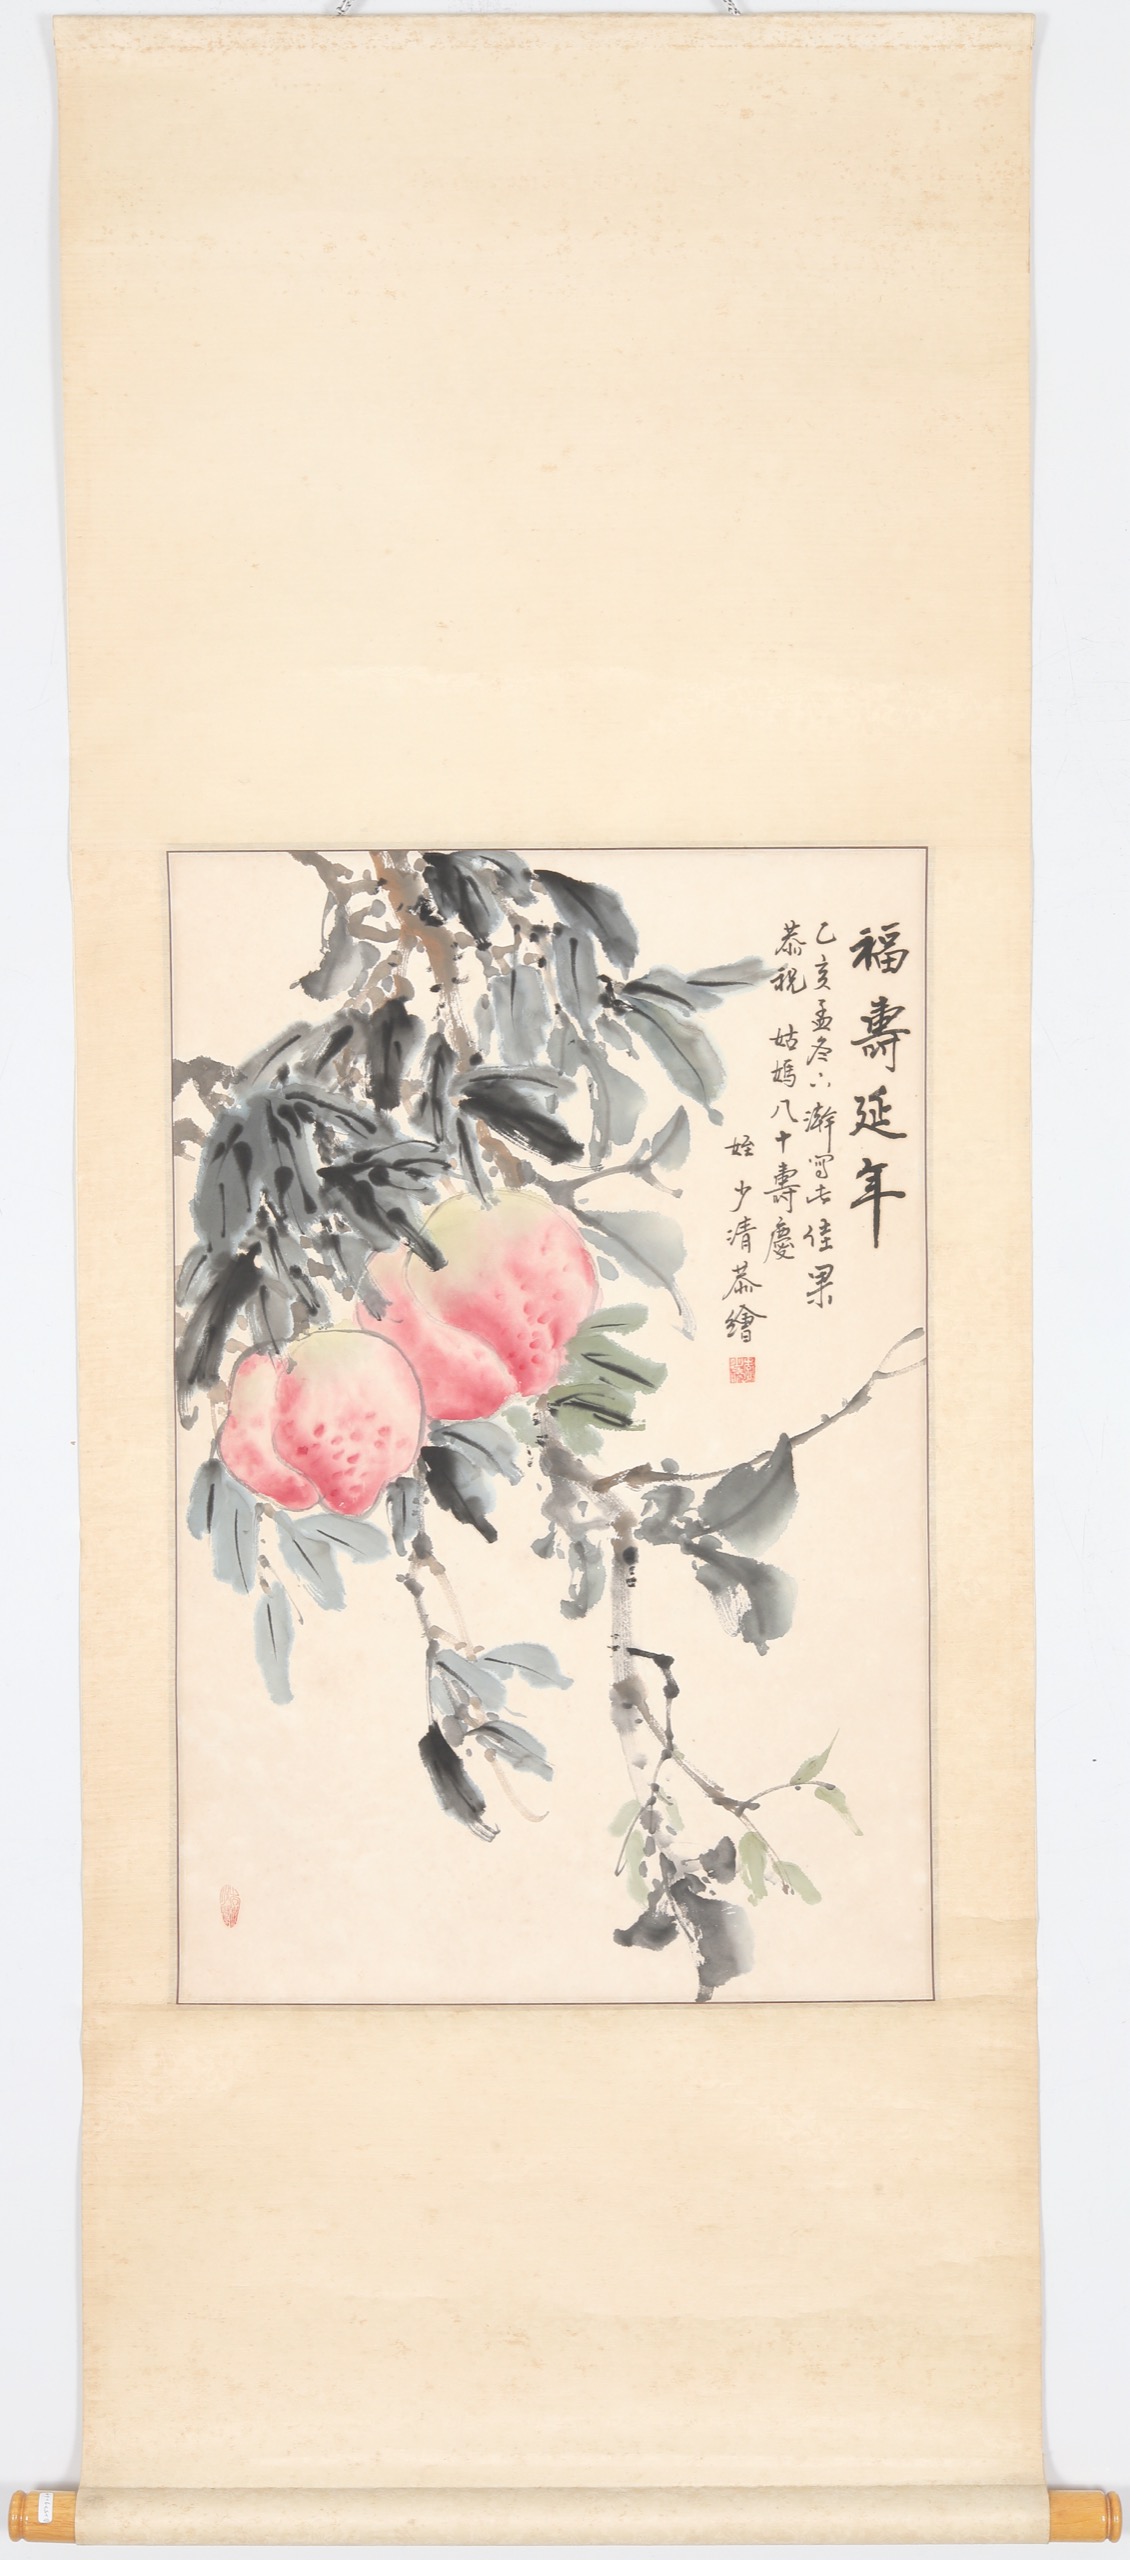 福壽延年
乙亥孟冬六澣寫此佳果
恭祝 姑媽八十壽慶
姪 少清恭繪